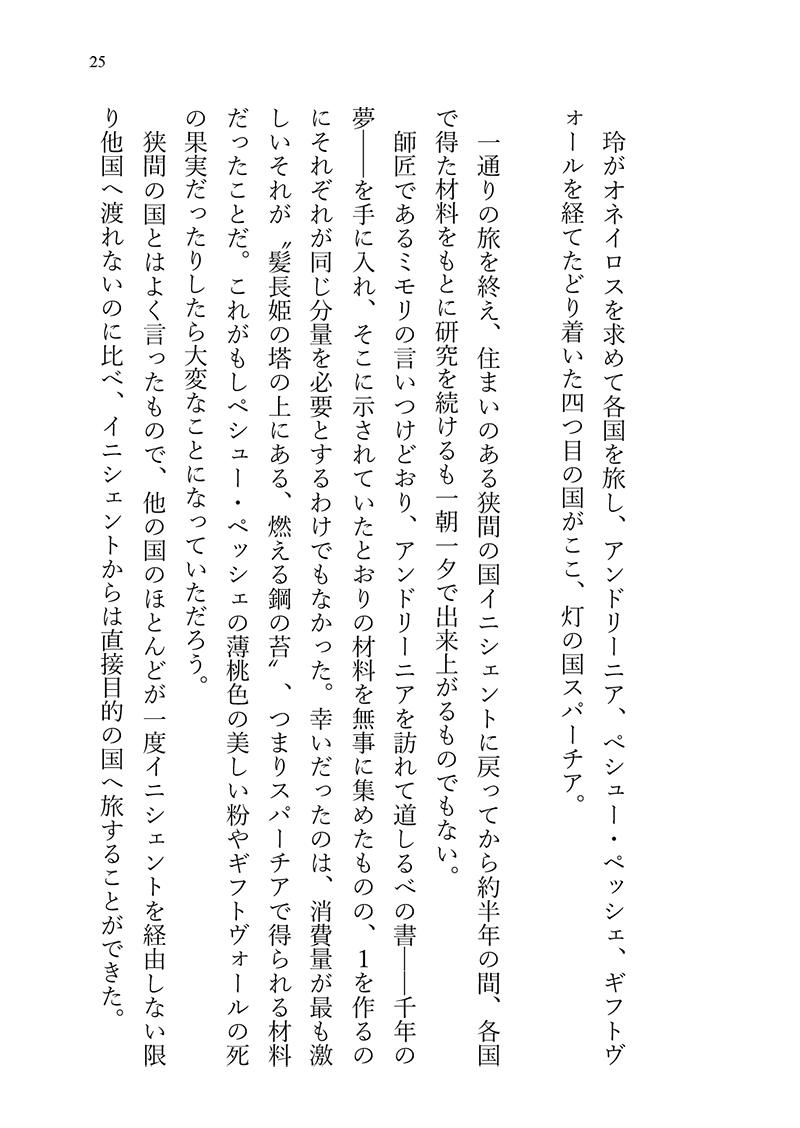 25
玲がオネイロスを求めて各国を旅し、アンドリーニア、ペシュー・ペッシェ、ギフトヴ
ォールを経てたどり着いた四つ目の国がここ、灯の国スパーチア。
一通りの旅を終え、住まいのある狭間の国イニシェントに戻ってから約半年の間、各国
で得た材料をもとに研究を続けるも一朝一夕で出来上がるものでもない。
師匠であるミモリの言いつけどおり、アンドリーニアを訪れて道しるべの書――千年の
夢――を手に入れ、そこに示されていたとおりの材料を無事に集めたものの、1を作るの
にそれぞれが同じ分量を必要とするわけでもなかった。幸いだったのは、消費量が最も激
しいそれが〝髪長姫の塔の上にある、燃える鋼の苔〟、つまりスパーチアで得られる材料
だったことだ。これがもしペシュー・ペッシェの薄桃色の美しい粉やギフトヴォールの死
の果実だったりしたら大変なことになっていただろう。
狭間の国とはよく言ったもので、他の国のほとんどが一度イニシェントを経由しない限
り他国へ渡れないのに比べ、イニシェントからは直接目的の国へ旅することができた。